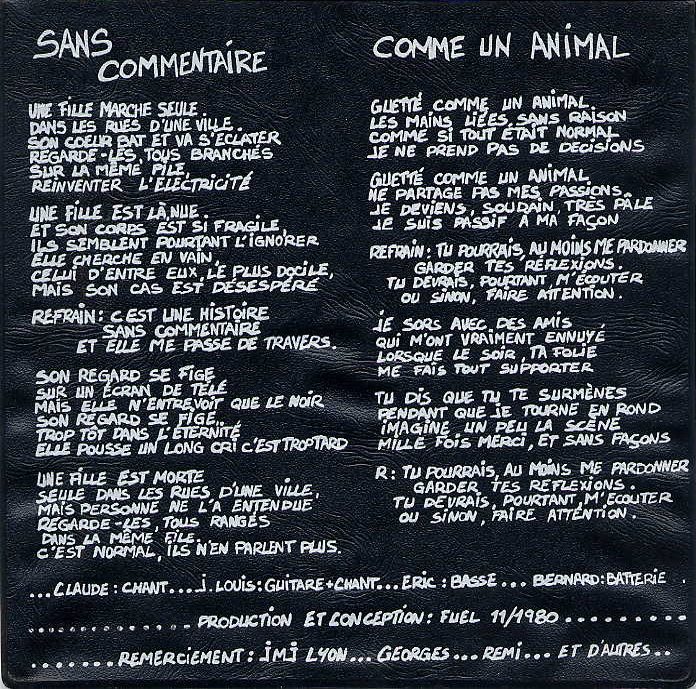 SANS
COMMENTAIRE
UNE FILLE MARCHE SEULE
DANS LES RUES D'UNE VILLE.
SON COEUR BAT ET VA S'ECLATER
REGARDE-LES, TOUS BRANCHÉS
SUR LA MÊME PILE,
REINVENTER L'ELECTRICITÉ
UNE FILLE EST LÀ, NUE.
ET SON CORPS EST SI FRAGILE,
ILS SEMBLENT POURTANT L'IGNORER
ELLE CHERCHE EN VAIN,
CELUI D'ENTRE EUX, LE PLUS DOCILE,
MAIS SON CAS EST DÉSESPÉRÉ
REFRAIN: C'EST UNE HISTOIRE
SANS COMMENTAIRE
ET ELLE ME PASSE DE TRAVERS.
SON REGARD SE FIGE
SUR UN ÉCRAN DE TÉLÉ
MAIS ELLE N'ENTREVOIT QUE LE NOIR
SON REGARD SE FIGE.
TROP TÔT DANS L'ÉTERNITÉ
ELLE POUSSE UN LONG CRI C'EST TROP TARD
UNE FILLE EST MORTE
SEULE DANS LES RUES D'UNE VILLE,
MAIS PERSONNE NE L'A ENTENDUE
REGARDE-LES, TOUS RANGÉS
DANS LA MÊME FILE.
C'EST NORMAL, ILS N'EN PARLENT PLUS.
COMME UN ANIMAL
GUETTÉ COMME UN ANIMAL.
LES MAINS LIÉES, SANS RAISON
COMME SI TOUT ÉTAIT NORMAL
JE NE PREND PAS DE DECISIONS
GUETTÉ COMME UN ANIMAL
NE PARTAGE PAS MES PASSIONS.
JE DEVIENS, SOUDAIN, TRÈS PÂLE
JE SUIS PASSIF A MA FAÇON
REFRAIN: TU POURRAIS, AU MOINS ME PARDONNER
GARDER TES RÉFLEXIONS.
TU DEVRAIS, POURTANT, M'ÉCOUTER
OU SINON, FAIRE ATTENTION.
JE SORS AVEC DES AMIS
QUI M'ONT VRAIMENT ENNUYÉ
LORSQUE LE SOIR, TA FOLIE
ME FAIS TOUT SUPPORTER
TU DIS QUE TU TE SURMÈNES
PENDANT QUE JE TOURNE EN ROND
IMAGINE, UN PEU LA SCÈNE
MILLE FOIS MERCI, ET SANS FAÇONS
R: TU POURRAIS, AU MOINS ME PARDONNER
GARDER TES REFLEXIONS.
TU DEVRAIS, POURTANT, M'ECOUTER
OU SINON, FAIRE ATTENTION.
...CLAUDE: CHANT....J. LOUIS: GUITARE+CHANT...ERIC: BASSE... BERNARD: BATTERIE.
............... PRODUCTION ET CONCEPTION: FUEL 11/1980 ...........
........REMERCIEMENT: JMJ LYON... GEORGES... REMI... ET D'AUTRES..